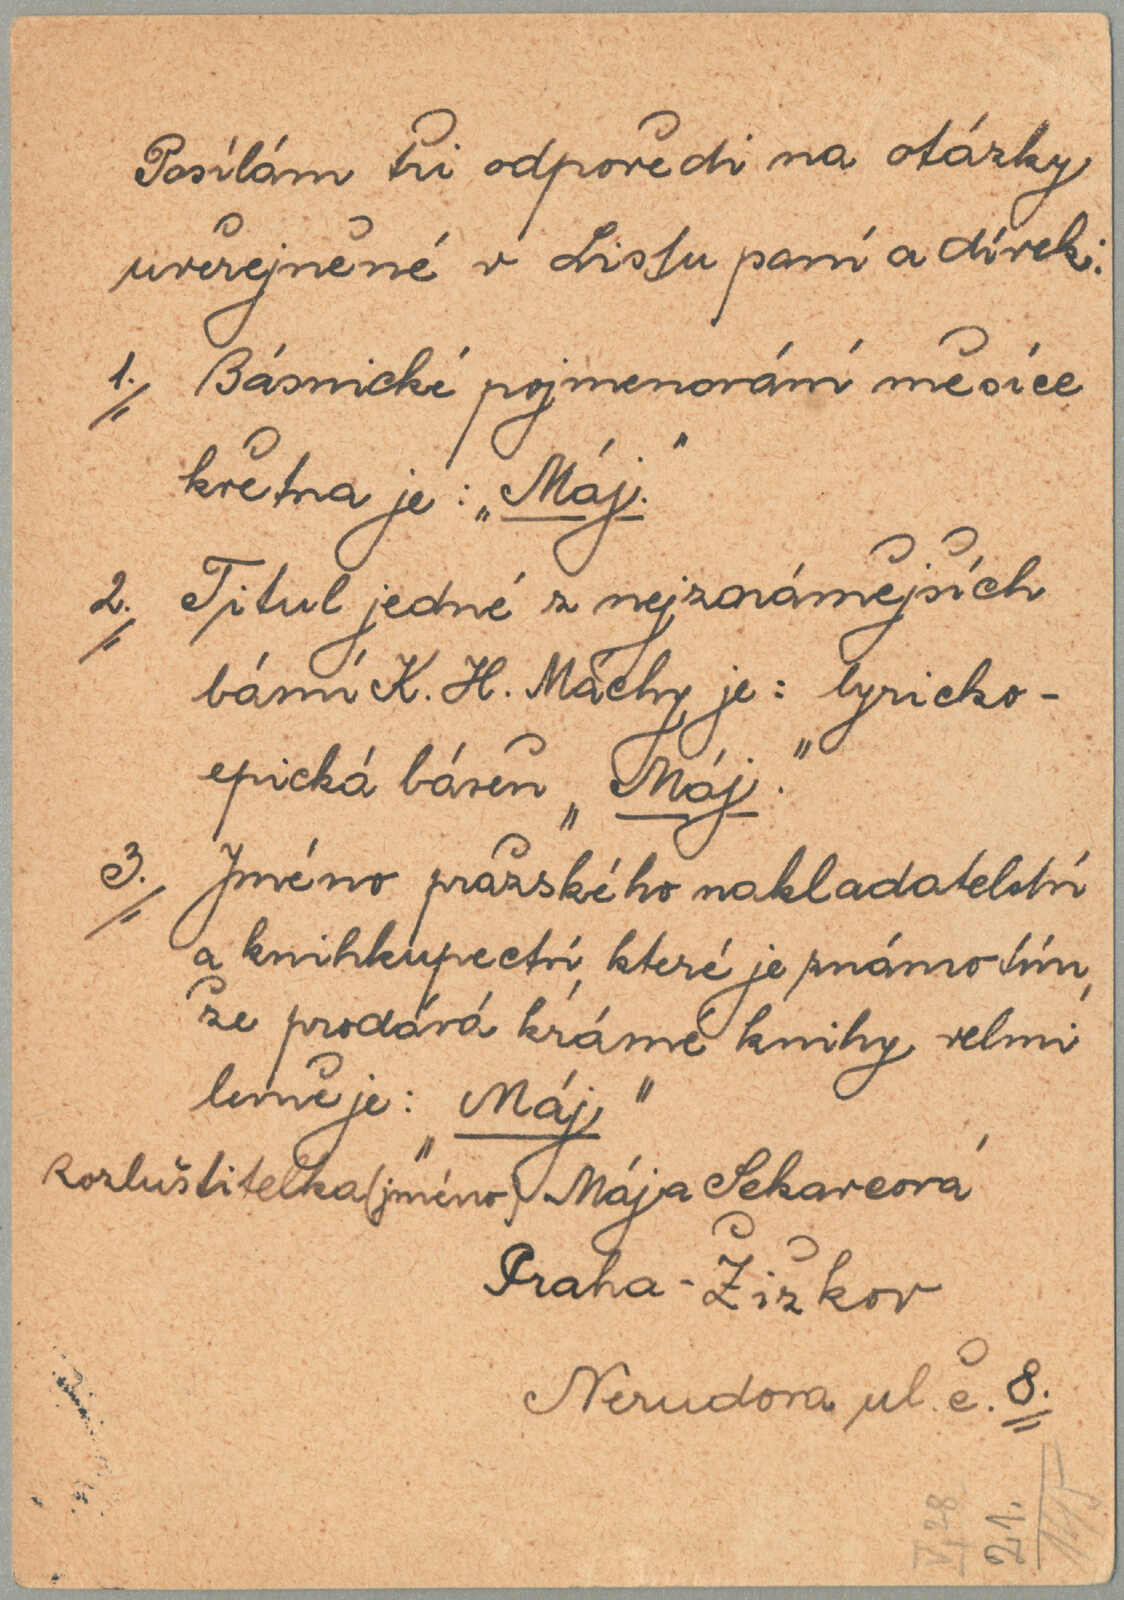 Posílám tři odpovědi na otázky
uveřejněné v Listu paní a dívek:
1. Básnické pojmenování měsíce
května je: „Máj.“
2. Titul jedné z nejznámějších
básní K. H. Máchy je: lyricko-
epická báseň „Máj.“
3. Jméno pražského nakladatelství
a knihkupectví, které je známo tím,
že prodává krámé knihy velmi
levně je: „Máj“
Rozluštitelka (jméno) Mája Sekavcová
Praha - Žižkov
Nerudova ul. č. 8.
21.
115